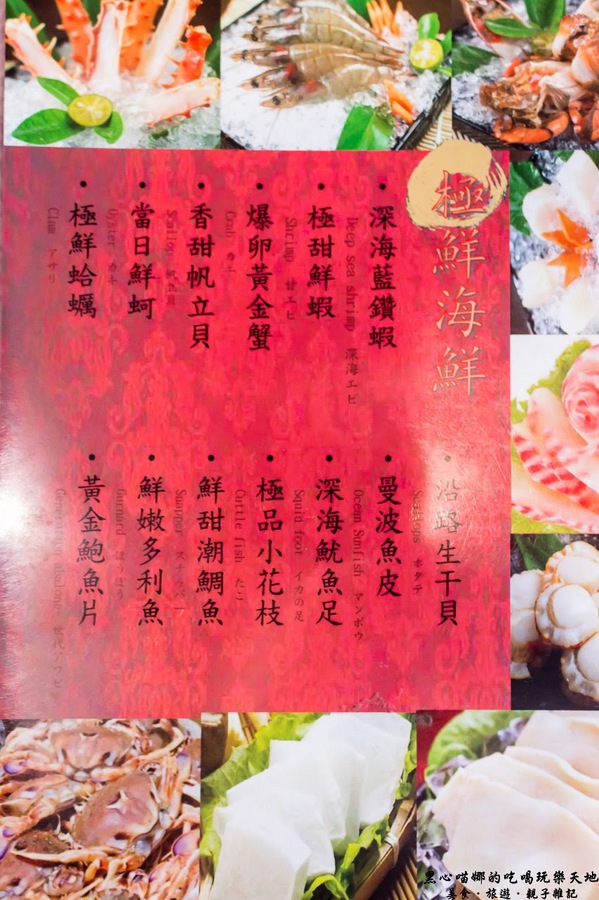 極鮮海鮮
深海藍鑽蝦
Deep sea shrimp 深海エビ
極甜鮮蝦
Shrimp 甘エビ
爆卵黃金蟹
Crab カニ
香甜帆立貝
當日鮮蚵
Oyster カキ
極鮮蛤蠣
Clam アサリ
沿路生干貝
Scallops ホタテ
曼波魚皮
Ocean Sunfish マンボウ
深海魷魚足
Squid foot イカの足
極品小花枝
Cuttle fish たこ
鮮甜潮鯛魚
Snapper スナッパー
鮮嫩多利魚
Gurnard ほうぼう
黃金鮑魚片
黑心喵娜的吃喝玩樂天地
美食·旅遊·親子雜記